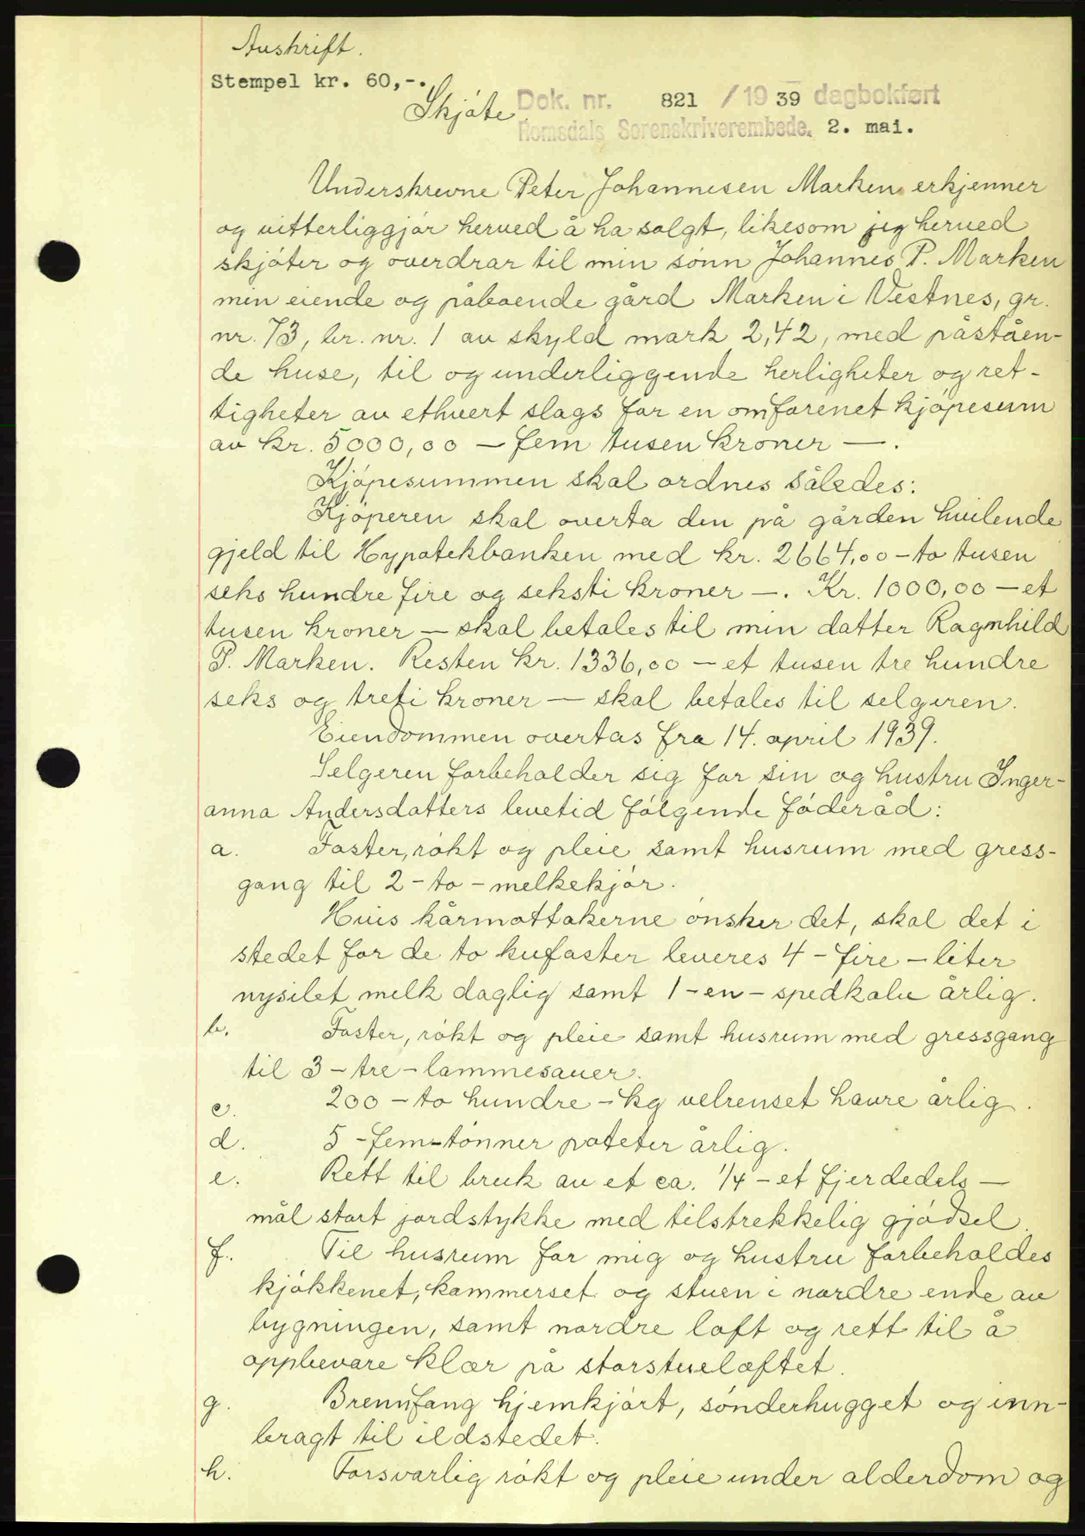 Avskrift.
Stempel kr. 60,-.
Skjöte Dok. nr. 821 / 19 39 dagbokført
Romsdals Sorenskriverembede. 2. mai.
Underskrevne Peter Johannesen Marken erkjenner
og vitterliggjör herved å ha solgt, likesom jeg herved
skjöter og overdrar til min sönn Johannes P. Marken
min eiende og påboende gård Marken i Vestnes, gr.
nr. 73, br. nr. 1 av skyld mark 2,42, med påståen-
de huse, til og underliggende herligheter og ret-
tigheter av ethvert slags for en omforenet kjöpesum
av kr. 5000,00 — fem tusen kroner —.
Kjöpesummen skal ordnes således:
Kjöperen skal overta den på gården hvilende
gjeld til Hypotekbanken med kr. 2664,00 - to tusen
seks hundre fire og seksti kroner —. Kr. 1000,00 — et
tusen kroner — skal betales til min datter Ragnhild
P. Marken. Resten kr. 1336,00 — et tusen tre hundre
seks og treti kroner — skal betales til selgeren.
Eiendommen overtas fra 14. april 1939.
Selgeren forbeholder sig for sin og hustru Inger-
anna Andersdatters levetid fölgende föderåd:
a. Foster, rökt og pleie samt husrum med gress-
gang til 2 - to - melkekjör.
Hvis kårmottakerne önsker det, skal det i
stedet for de to kufoster leveres 4 - fire - liter
nysilet melk daglig samt 1 - en - spedkalv årlig.
b. Foster, rökt og pleie samt husrum med gressgang
til 3 - tre - lammesauer.
c. 200 - to hundre - kg velrenset havre årlig.
d. 5 - fem - tönner poteter årlig.
e. Rett til bruk av et ca. 1/4 - et fjerdedels —
mål stort jordstykke med tilstrekkelig gjödsel.
f. Til husrum for mig og hustru forbeholdes
kjökkenet, kammerset og stuen i nordre ende av
bygningen, samt nordre loft og rett til å
oppbevare klær på storstueloftet.
g. Brennfang hjemkjört, sönderhugget og inn-
bragt til ildstedet.
h. Forsvarlig rökt og pleie under alderdom og